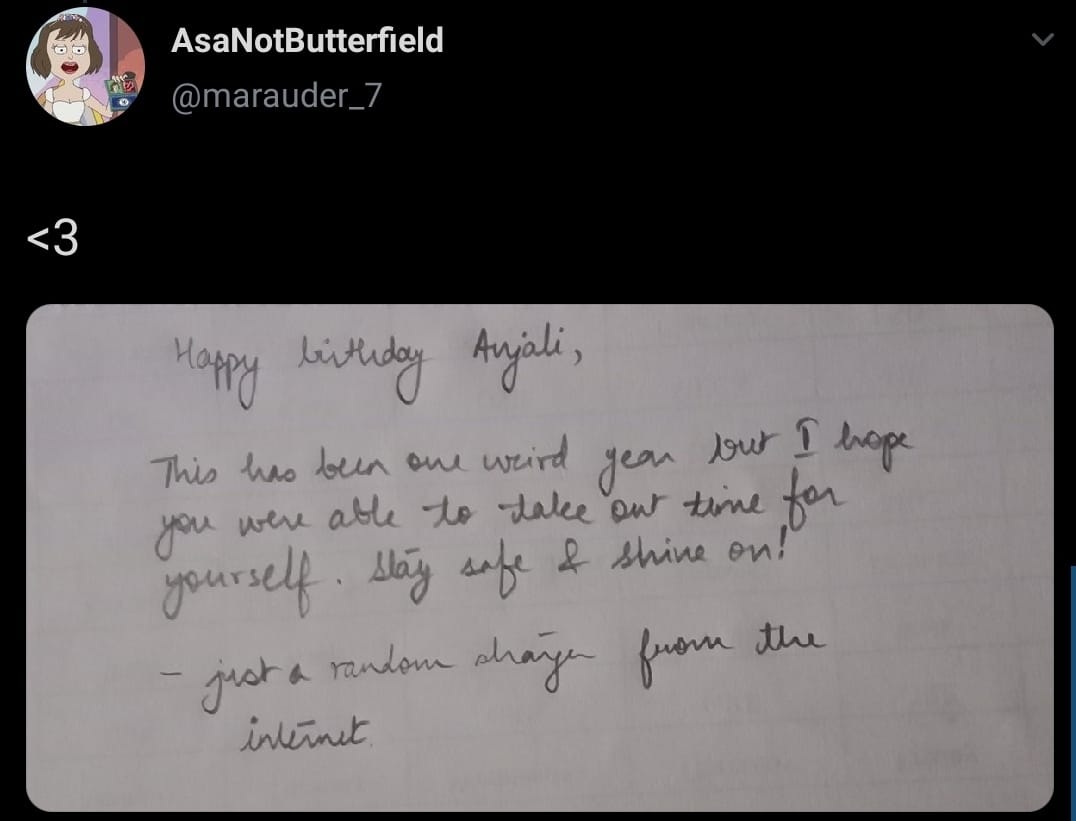 AsaNotButterfield
@marauder_7
<3
Happy birthday Anjali,
This has been one weird year but I hope
you were able to take out time for
yourself. Stay safe & shine on!
- just a random from the
internet.